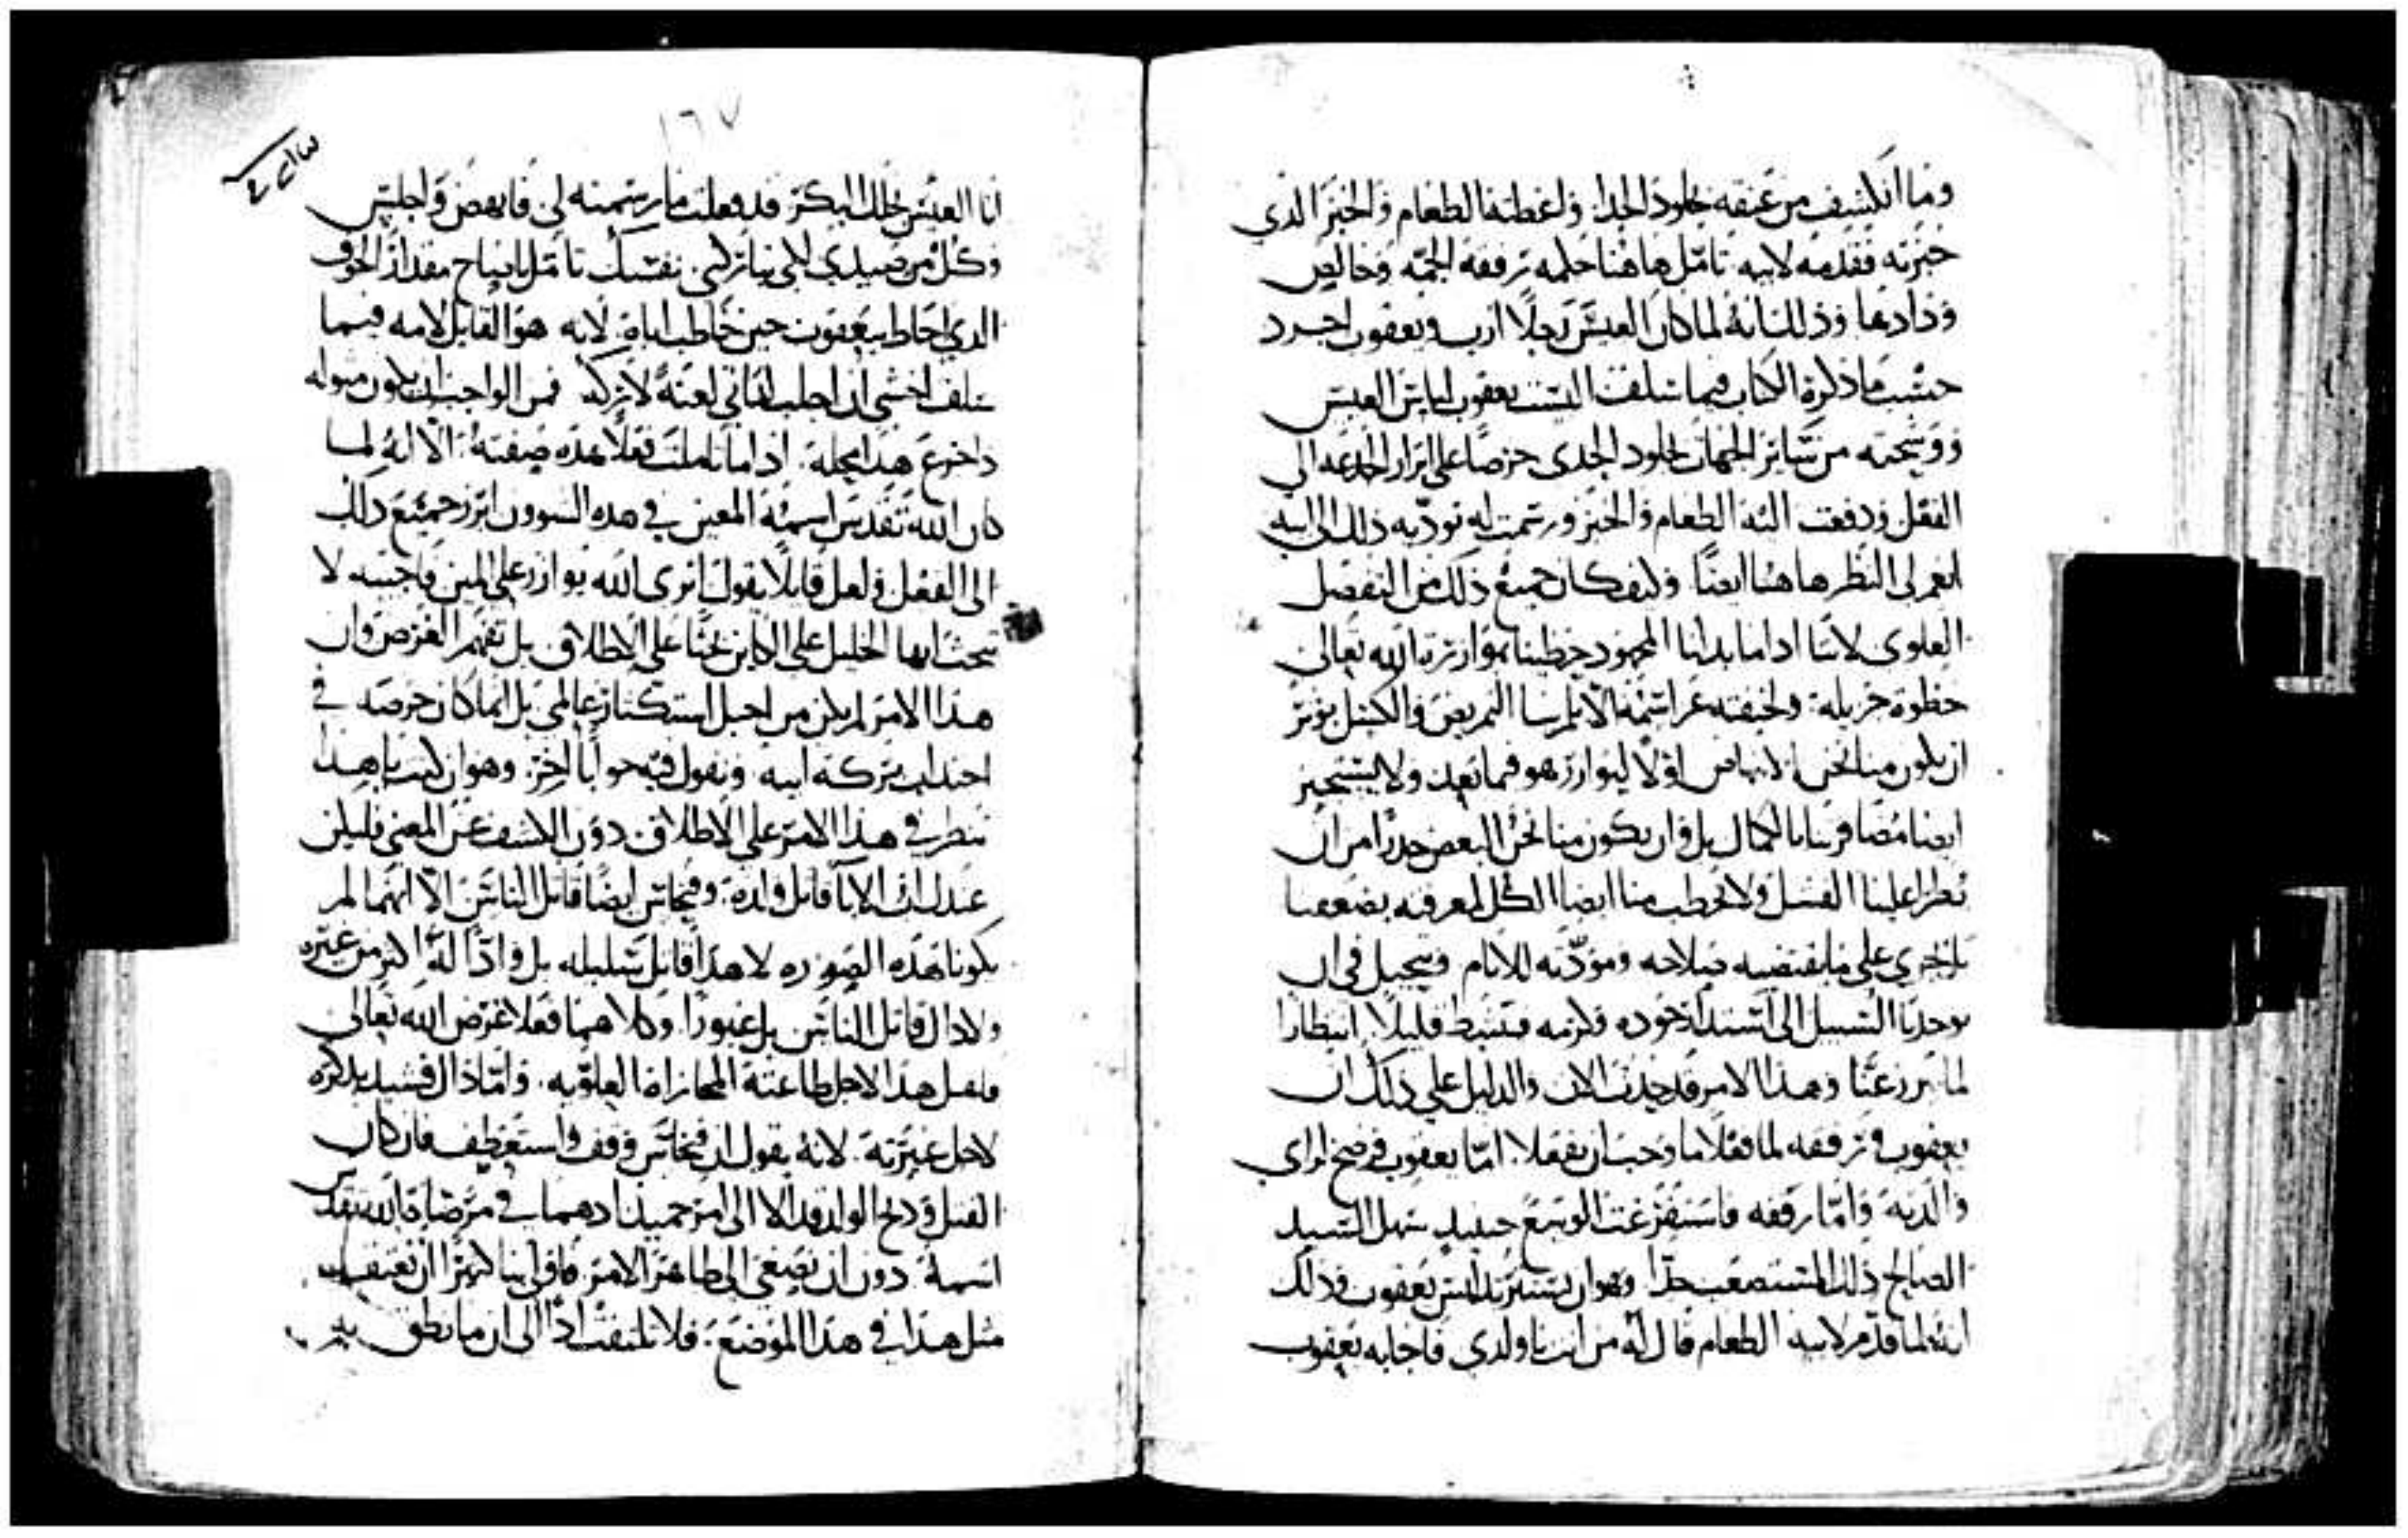 وما انكشف من عنقه بجلود الجدا واعطته الطعام والخبز الذي
خبزته فقدمه لابيه تامل هاهنا حلمه ترفقه الجمه وخالص
ودادها وذلك انه لما كان العيس رجلا ازب ويعقوب اجرد
حسب ما ذكره الكتاب فيما سلف البست يعقوب لباس العيس
ووشحته من سائر الجهات بجلود الجدى حرصا على ابراز الخدعه الى
الفعل ودفعت اليه الطعام والخبز ورسمت له تودّيه ذلك الى ابيه
انعم لي النظر هاهنا ايضا وكيف كان جميع ذلك من التفضل
العلوى لاننا اذا ما بدلنا المجهود حظينا بموازرة الله تعالى
حظوة جزيله ولخيفته عز اسمه الا يلم بنا التمريض والكسل يوثر
ان يكون منا نحن الانهاض اولا ليوازر هو فيما بعد ولا يستجيز
ايضا مضافرتنا بالكمال بل وان يكون منا نحن البعض حدرا من ان
يطرا علينا الفشل ولا يحطب منا ايضا الكل لمعرفته بضعفنا
بل يجري على ما يقتضيه صلاحه ومودّته للانام ويتحيل في ان
يوجدنا السبيل الى استبداد جوده وكرمه فيتثبط قليلا انتظارا
لما يبرز عنا وهذا الامر قد حدث الان والدليل على ذلك ان
يعقوب وترفقه لما فعلا ما وجب ان يفعلا امّا يعقوب فرضخ لراي
والدته وامّا رفقه فاستفرغت الوسع حينيد سهل السيد
الصالح ذلك المستصعب جدّا وهو ان يستتر بلبس يعقوب وذلك
انه لما قدّم لابيه الطعام قال له من انت يا ولدي فاجابه يعقوب
١٦٧
انا العيس نجلك البكر قد فعلت ما رسمته لي فانهض واجلس
وكل من صيدي لكي تباركني نفسك تامل يا صاح مقدار الخوف
الذي احاط بيعقوب حين خاطب اباه لانه هو القايل لامه فيما
سلف اخشى ان اجلب لذاتي لعنة لا بركه فمن الواجب ان يكون مبوله
واخترع هذا بجلة اذا ما تاملت فعلا هذه صفته الا انه لما
كان الله تقدس اسمه المعين في هذه الشوون ابرز جميع ذلك
الى الفعل ولعل قايلا يقول اترى الله يوازر على المين فاجيبه لا
تبحث ايها الخليل على الكاين بحثا على الاطلاق بل تفهم الغرض وان
هذا الامر لم يكن من اجل استكثار عالمي بل انما كان حرصه في
اجتداب بركة ابيه ونقول فيه جوابا اخر وهو ان كنت يا هذا
تنظر في هذا الامر على الاطلاق دون الكشف عن المعنى فليكن
عندك ان الابا قاتل ولده وفنحاس ايضا قاتل الناس الا انهما لم
يكونا بهذه الصوره لا هذا قاتل سليله بل وادّا له اكثر من غيره
ولا ذاك قاتل الناس بل غيورا وكلاهما فعلا غرض الله تعالى
فلعل هذا لاجل طاعته المجازاه العلوّيه وامّا ذاك فشيد بذكره
لاجل غيرته لانه يقول ان فنحاس وقف واستعطف فان كان
القتل وذبح الولد قد الا الى امر حميد اذ هما في مرضاة الله تقدس
اسمه دون ان يصغى الى ظاهر الامر فاولى بنا كثيرا ان نعتقد
مثل هذا في هذا الموضع فلا تلتفت اذا الى ان ما نطق به